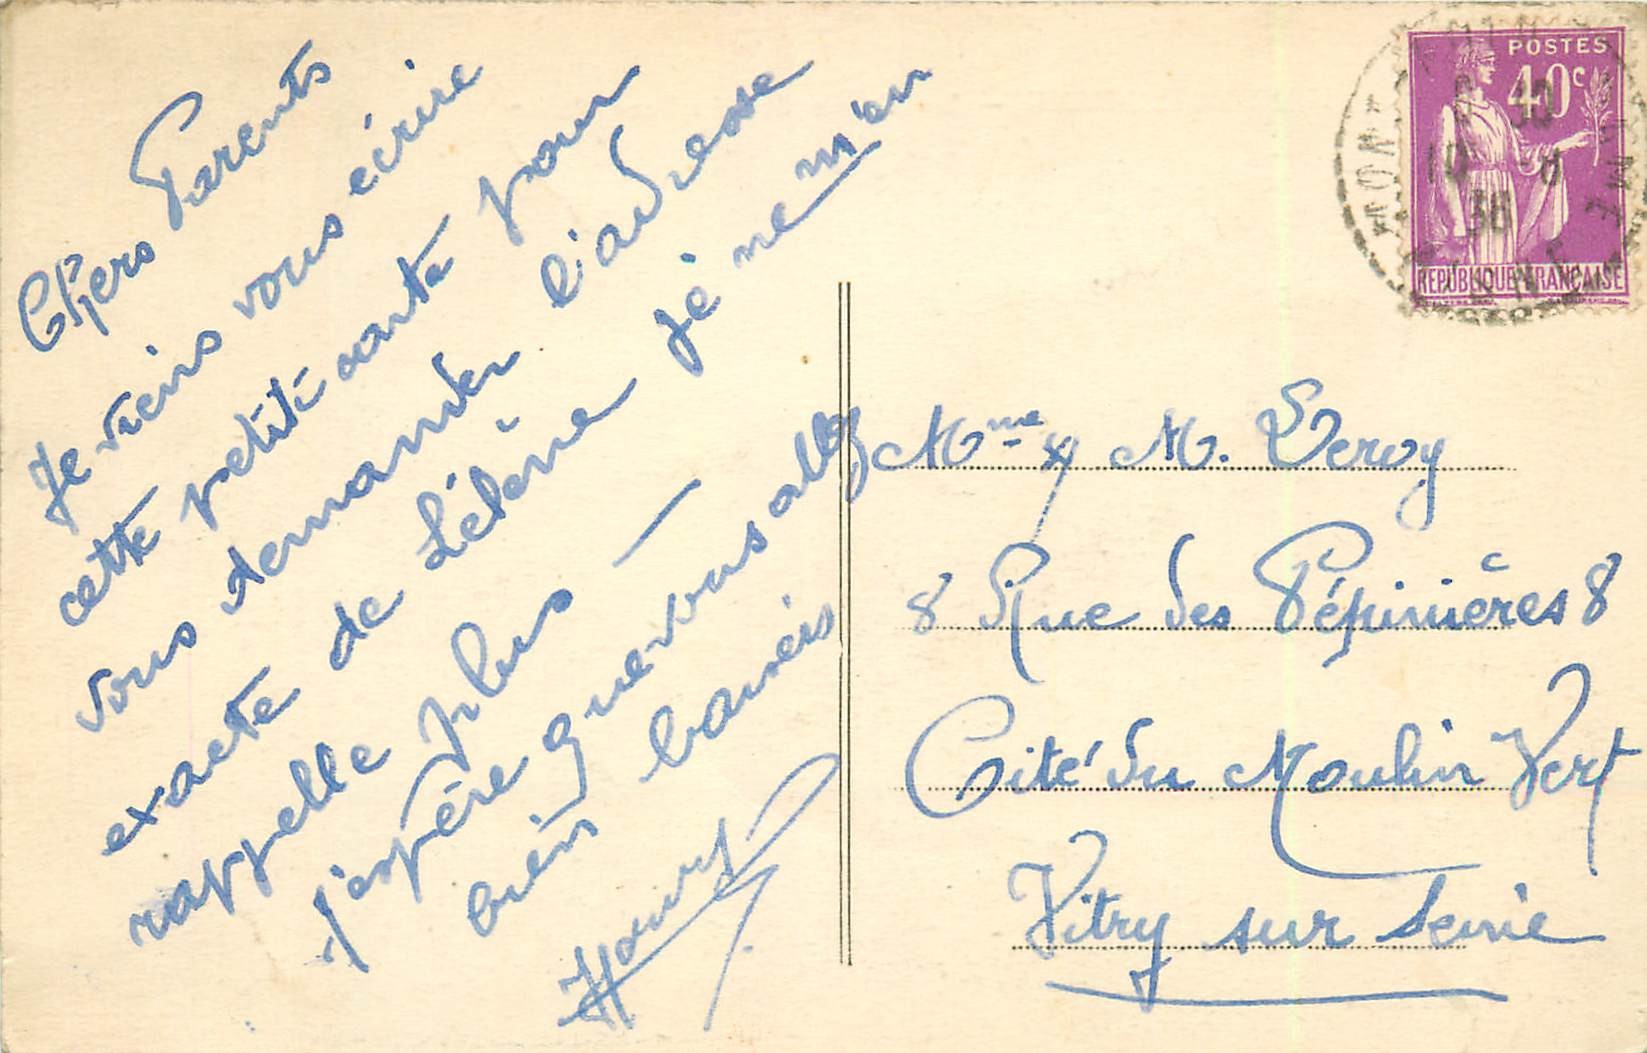 Chers Parents
Je viens vous écrire
cette petite carte pour
vous demander l'adresse
exacte de Hélène je ne m'en
rappelle plus —
j'espère que vous allez
bien baisers
POSTES
40c
REPUBLIQUE FRANÇAISE
18 30
10 -8
36
Mme & M. Leroy
8 Rue des Pépinières 8
Cité du Moulin Vert
Vitry sur Seine